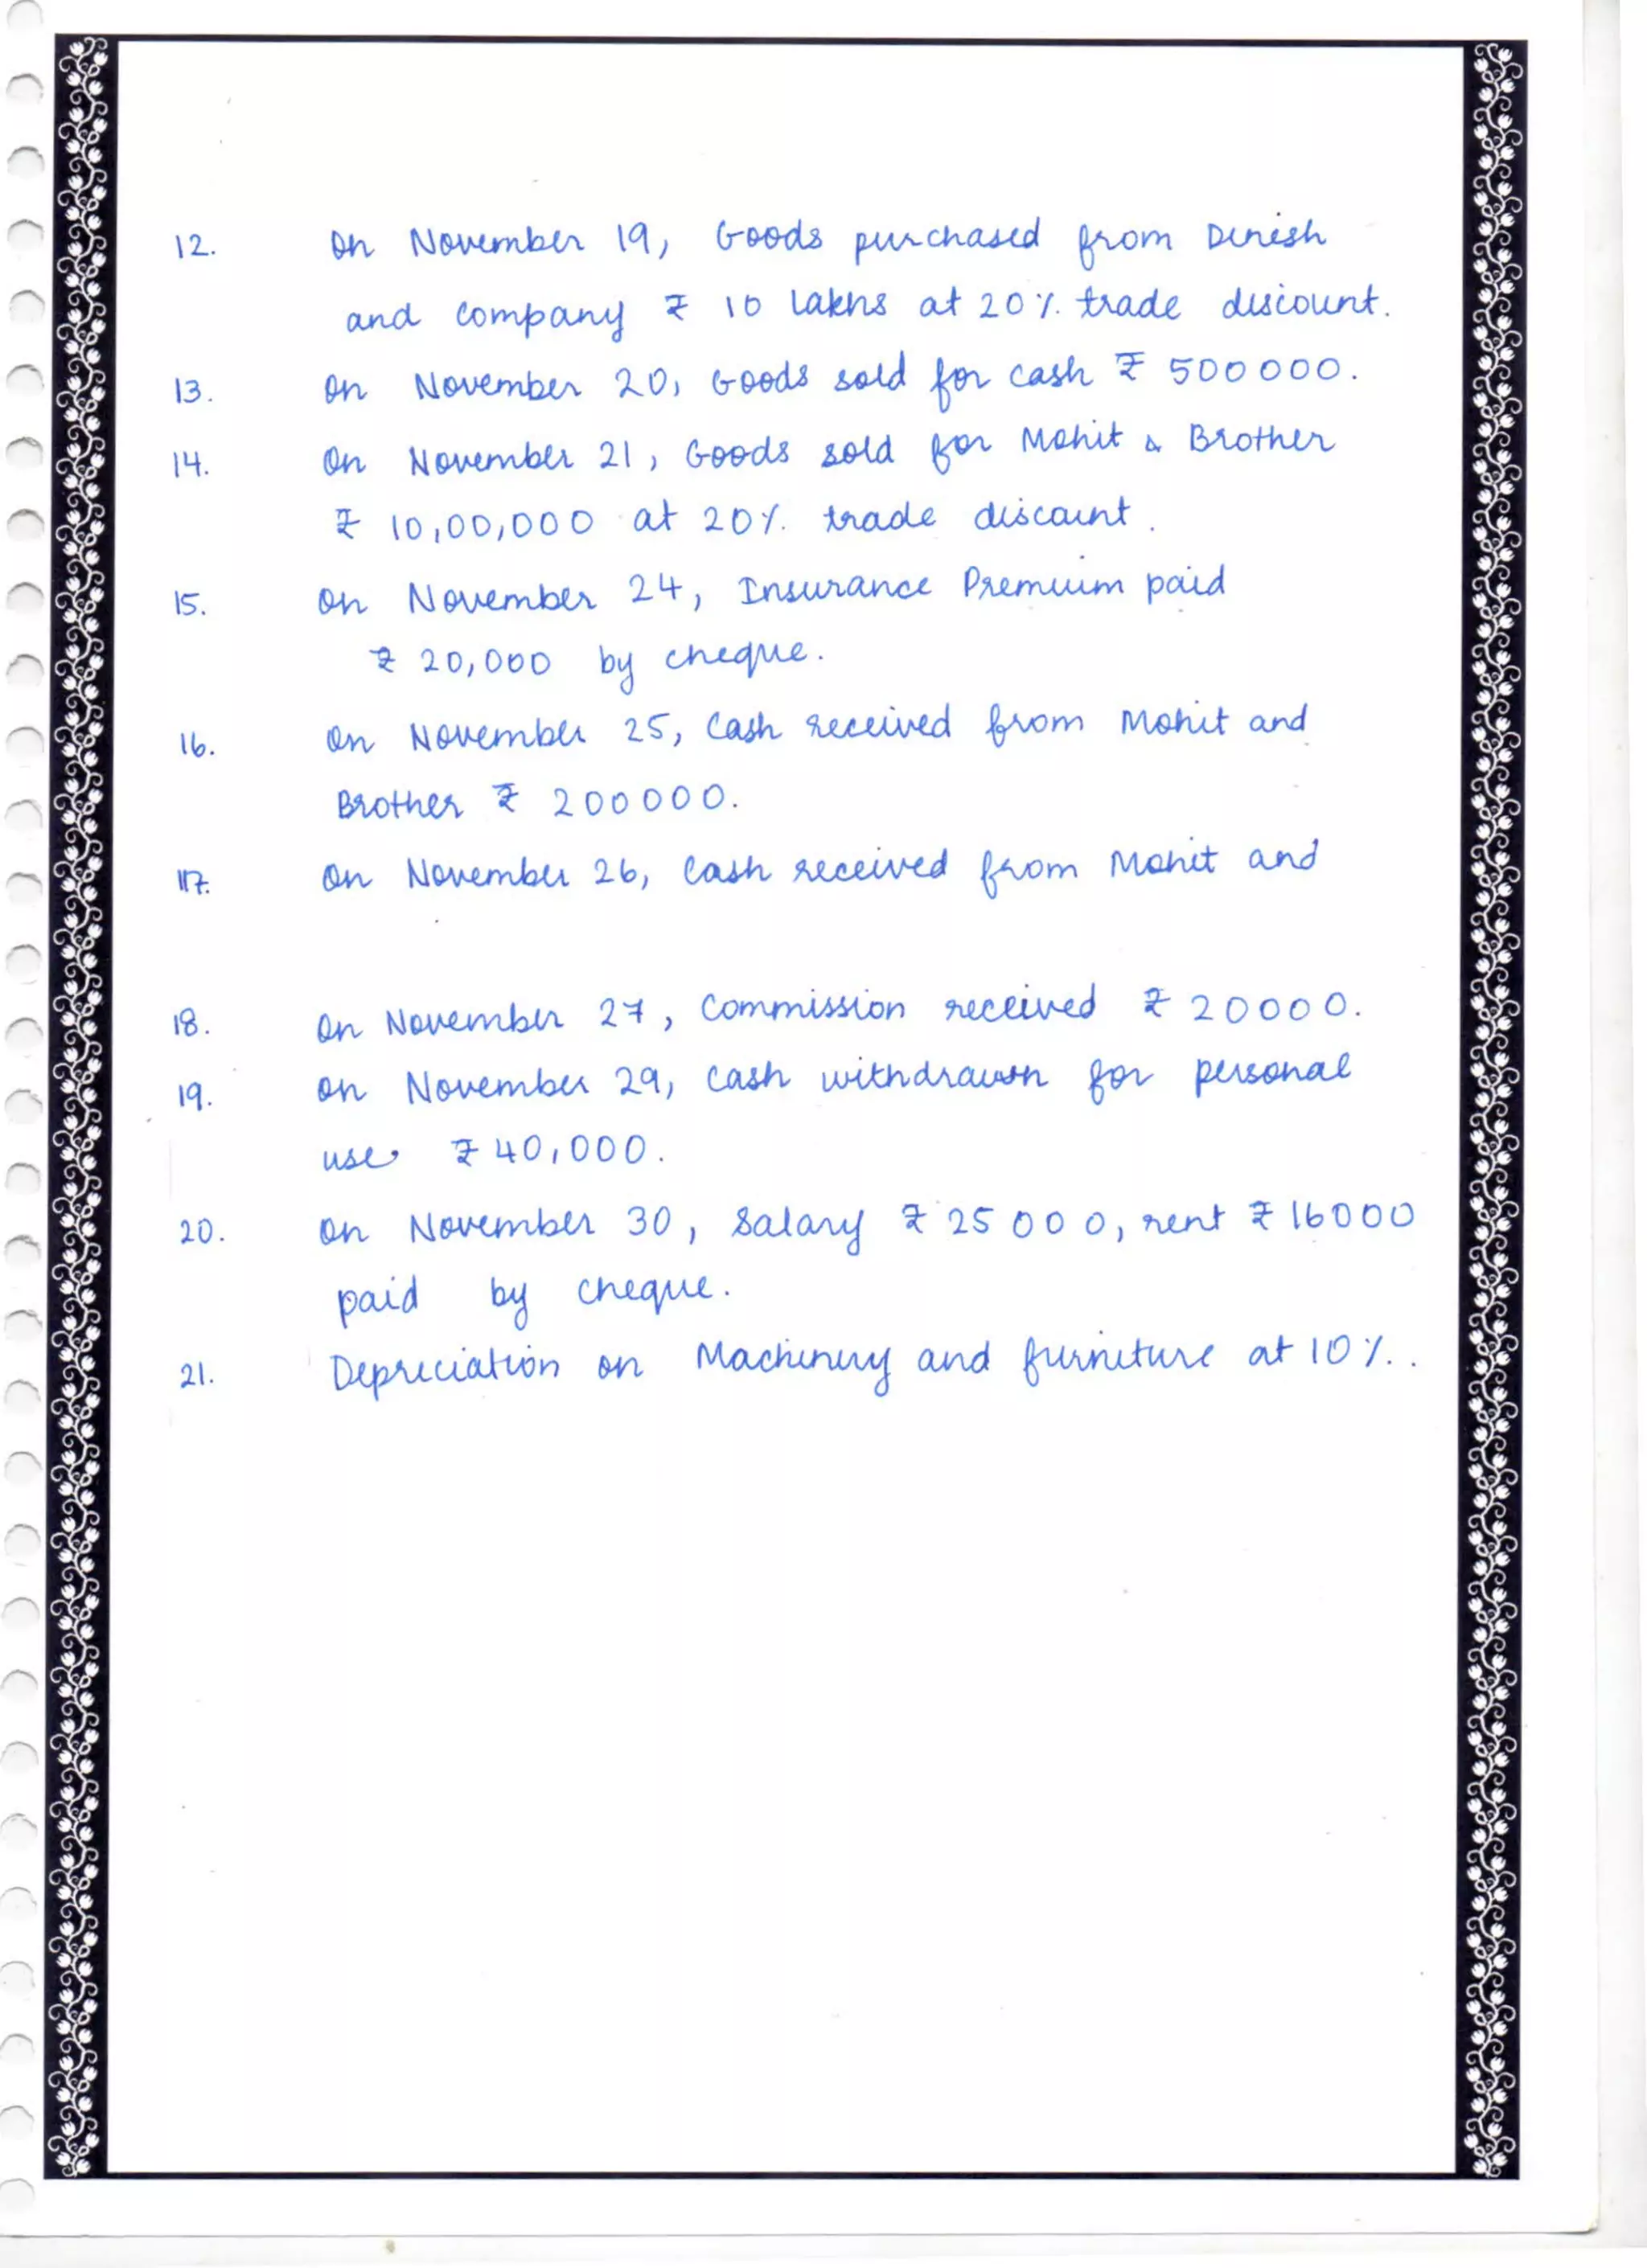 12. On November 19, Goods purchased from Dinesh
and Company ₹ 10 lakhs at 20%. trade discount.
13. On November 20, Goods sold for cash ₹ 500000.
14. On November 21, Goods sold for Mohit & Brother
₹ 10,00,000 at 20%. trade discount.
15. On November 24, Insurance Premium paid
₹ 20,000 by cheque.
16. On November 25, Cash received from Mohit and
Brother ₹ 200000.
17. On November 26, Cash received from Mohit and
18. On November 27, Commission received ₹ 20000.
19. On November 29, Cash withdrawn for personal
use ₹ 40,000.
20. On November 30, Salary ₹ 25000, rent ₹ 16000
paid by cheque.
21. Depreciation on Machinery and furniture at 10%..